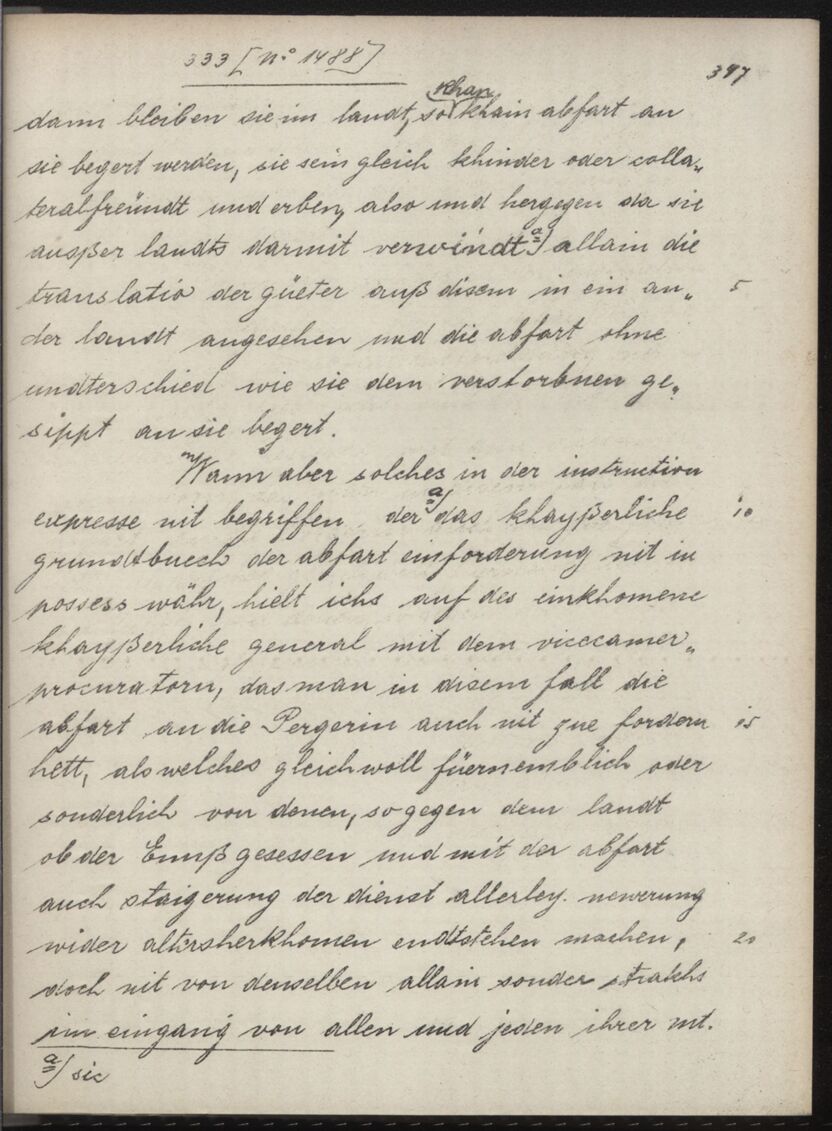 333 [N° 1488]
397
khan
dann bleiben sie im landt, so khain abfart an
sie begert werden, sie sein gleich khinder oder colla„
teralfreündt und erben, also und hergegen da sie
außer landts darmit verwindt a) allain die
translatio der güeter auß disem in ein an„ 5
der landt angesehen und die abfart ohne
undterschied wie sie dem verstorbnen ge„
sippt an sie begert.
m) Wann aber solches in der instruction
expresse nit begriffen der a) das khayßerliche 10
grundtbuech der abfart einforderung nit in
possess währ, hielt ichs auf des einkhomene
khayßerliche general mit dem vicecamer„
procuratorn, das man in disem fall die
abfart an die Pergerin auch nit zue fordern 15
hett, als welches gleichwoll füernemblich oder
sonderlich von denen, so gegen dem landt
ob der Ennß gesessen und mit der abfart
auch staigerung der dienst allerley newerung
wider altersherkhomen endtstehen machen, 20
doch nit von denselben allain sonder strakhs
im eingang von allen und jeden ihrer mt.
a) sic